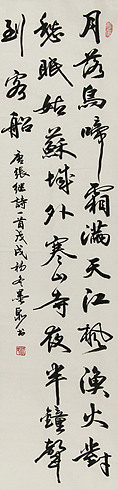 月落烏啼霜滿天江楓漁火對
愁眠姑蘇城外寒山寺夜半鐘聲
到客船
唐張继詩一首戊戌